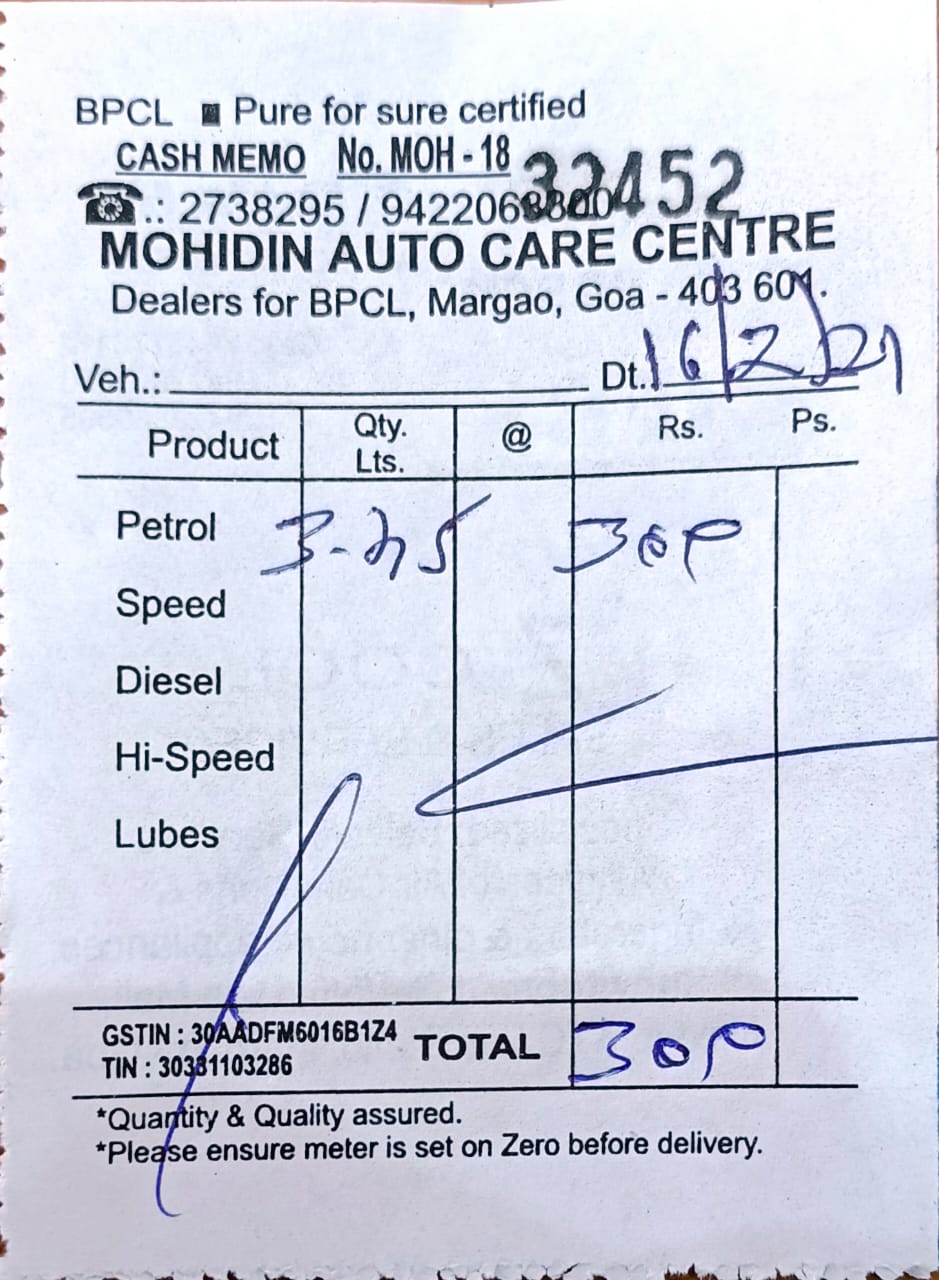 BPCL Pure for sure certified
CASH MEMO No. MOH - 18
.: 2738295 /
MOHIDIN AUTO CARE CENTRE
Dealers for BPCL, Margao, Goa - 403 601.
Veh.: Dt. 16/2/21
Product Qty. Lts. @ Rs. Ps.
Petrol 300
Speed
Diesel
Hi-Speed
Lubes
GSTIN : 30AADFM6016B1Z4 TOTAL 300
TIN : 30381103286
*Quantity & Quality assured.
*Please ensure meter is set on Zero before delivery.